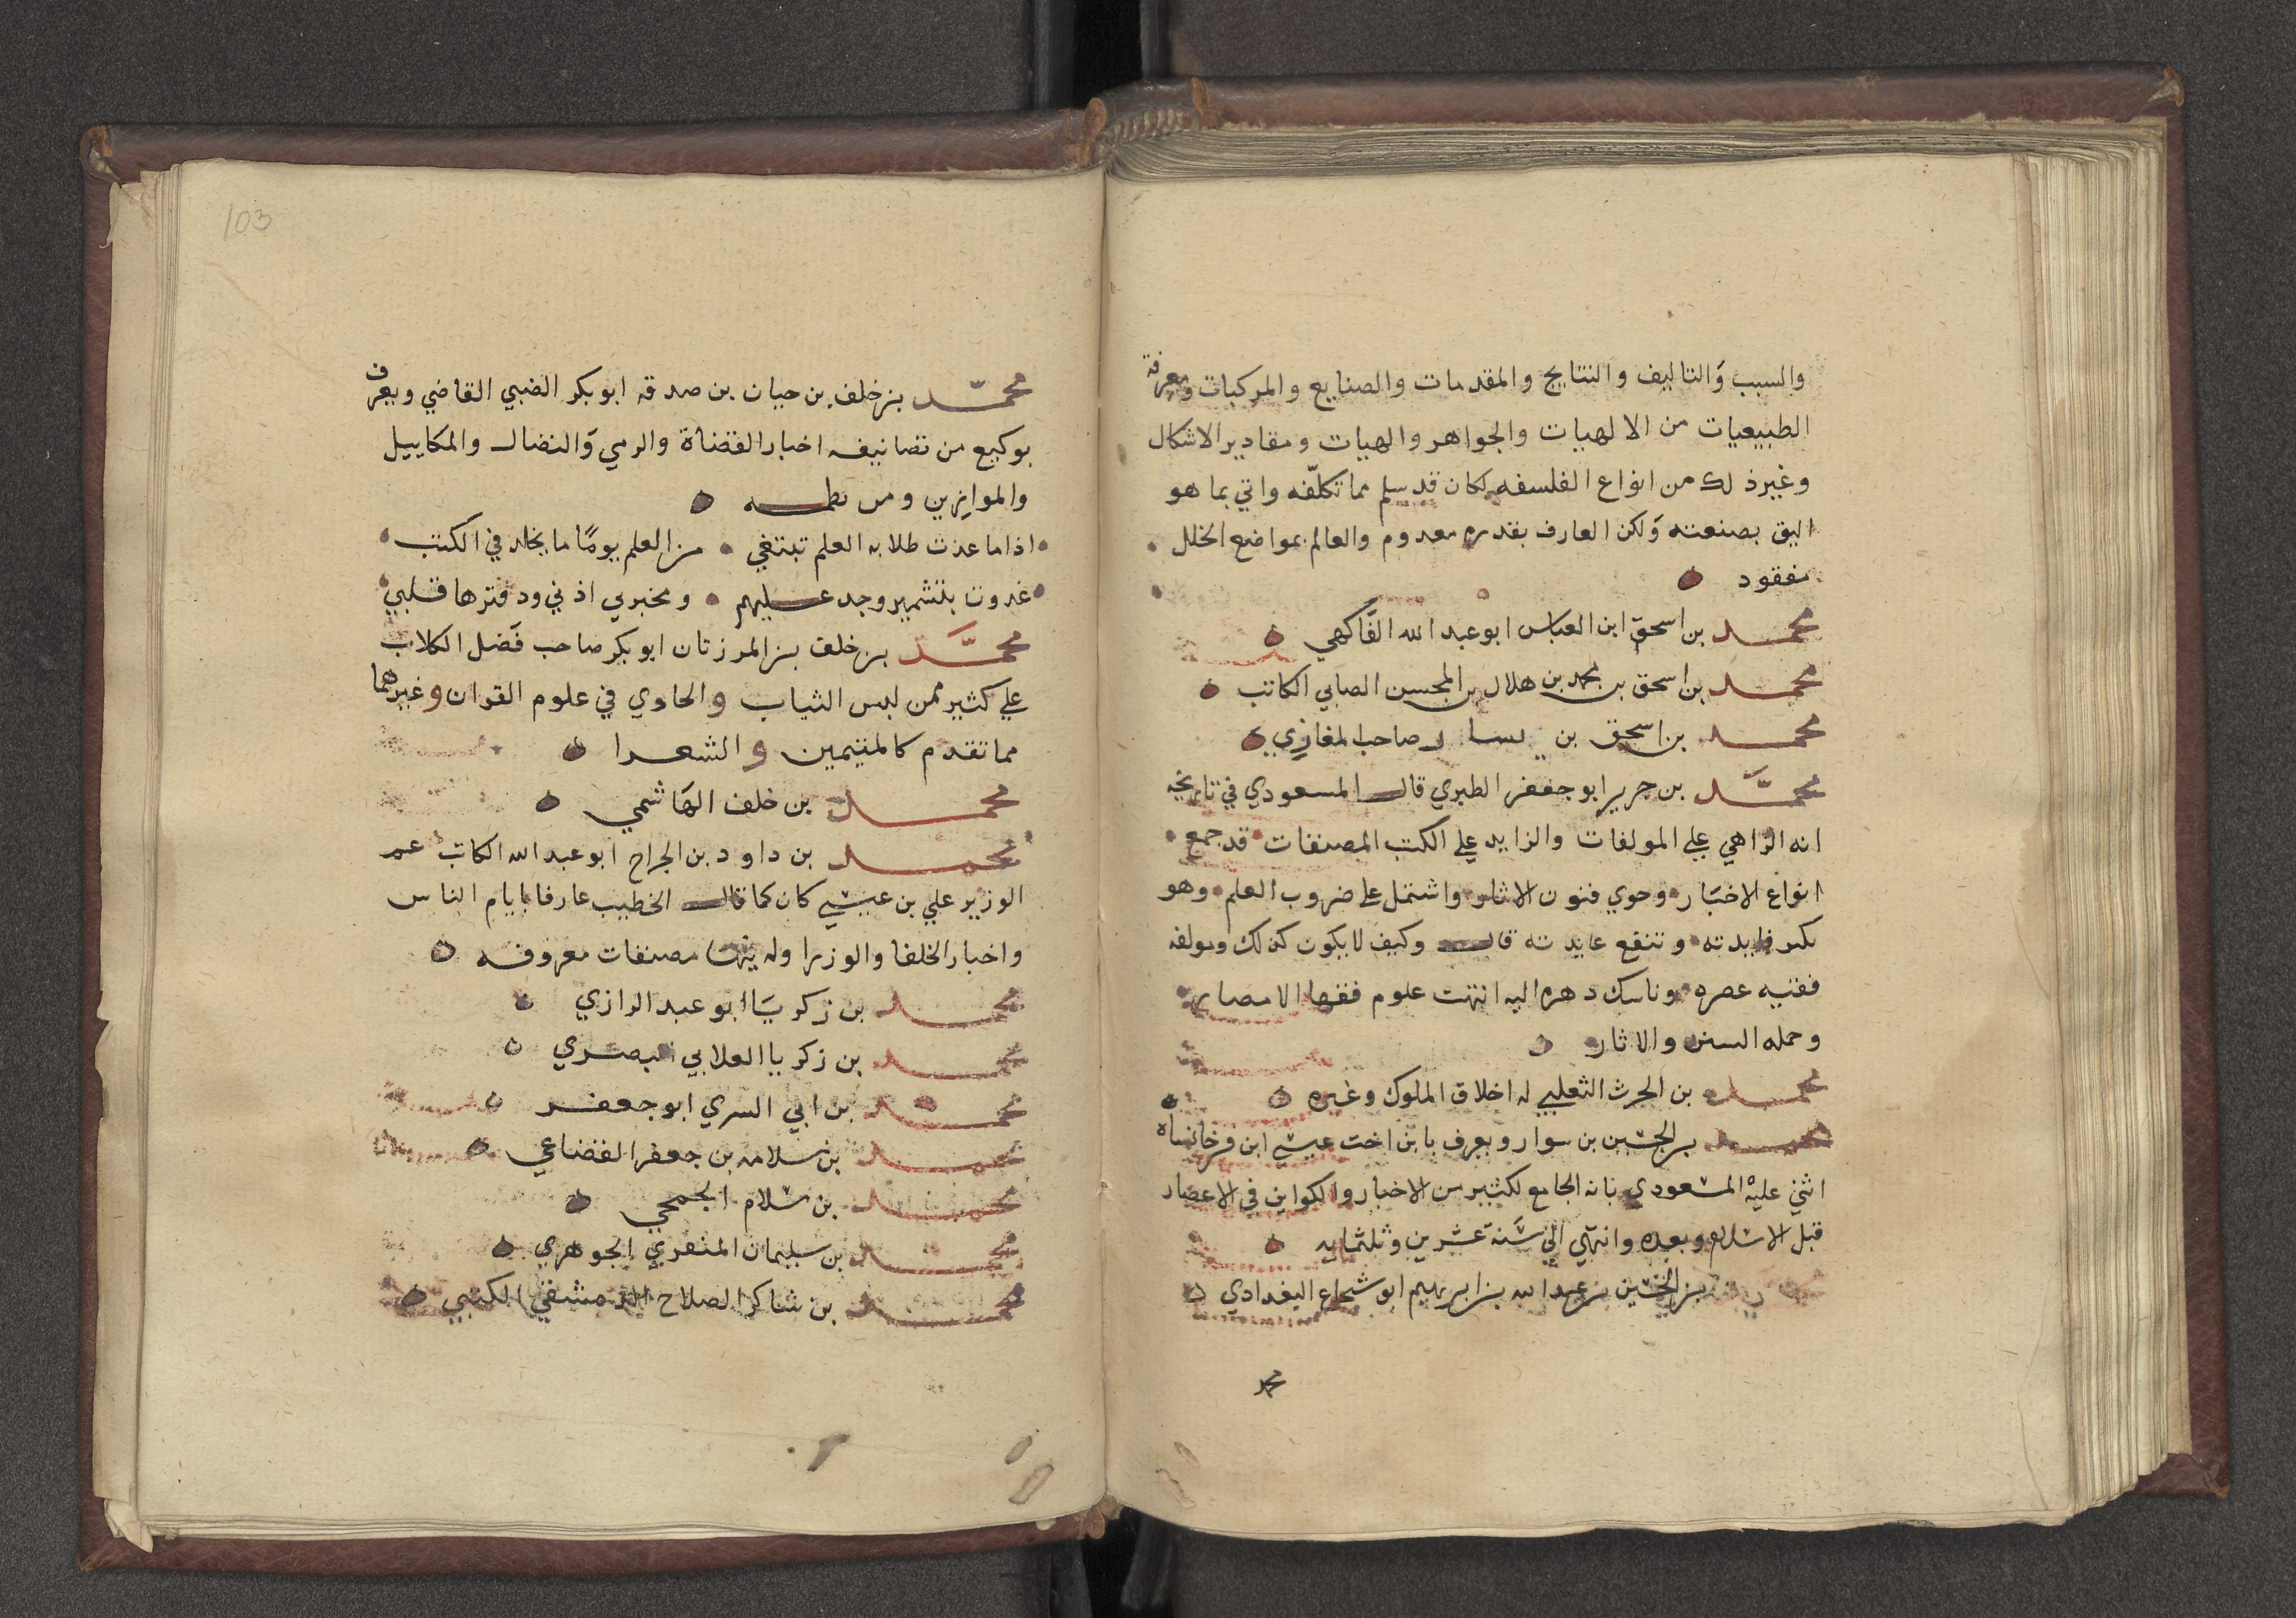 والسبب وَالتاليف والنتايج والمقدمات والصنايع والمركبات ومعرفة
الطبيعيات من الالهيات والجواهر والهيات ومقادير الاشكال
وغير ذلك من انواع الفلسفه لكان قد سلم مما تكلّفه واتي بما هو
اليق بصنعته وَلكن العارف بقدره معدوم والعالم بمواضع الخلل
مفقود
محمد بن اسحق ابن العباس ابو عبد الله الفَاكهي
محمد بن اسحق بن محمد بن هلال بن المحسن الصابي الكاتب
محمد بن اسحق بن يسار صاحب المغازي
محمَّد بن جرير ابو جعفر الطبري قال المسعودي في تاريخه
انه الزاهي علي المولفات والزايد علي الكتب المصنفات قد جمع
انواع الاخبَار وحوي فنون الاثار واشتمل علي ضروب العلم وهو
تكثر فايدته وتنفع عايدته قال وكيف لا يكون كذلك ومولفه
فقيه عصره وناسك دهره اليه انتهت علوم فقها الامصار
وحمله السنن والاثار
محمد بن الحرث الثعلبي له اخلاق الملوك وغيره
محمد بن الحسين بن سوار ويعرف بابن اخت عيسي ابن فرخانشاه
اثني عليه المسعودي بانه الجامع لكثير من الاخبار والكواين في الاعصار
قبل الاسلام وبعده وانتهي الي سَنة عشرين وثلثمايه
بن الحسين بن عبد الله بن ابرهيم ابو شجاع البغدادي
محمد
103
محمّد بن خلف بن حيان بن صدقه ابو بكر الضبي القاضي ويعرف
بوكيع من تصانيفه اخبار القضاة والرمي وَالنضال والمكاييل
والموازين ومن نظمه
اذا ما غدت طلابه العلم تبتغي من العلم يومًا ما يخلد في الكتب
غدوت بتشمير وجد عليهم ومخبرتي اذني ودفترها قلبي
محمَّد بن خلف بن المرزبان ابو بكر صاحب فَضل الكلاب
علي كثير ممن لبس الثياب والحاوي في علوم القران وغيرهما
مما تقدم كالمتيمين والشعرا
محمد بن خلف الهَاشمي
محمد بن داود بن الجراح ابو عبد الله الكاتب عم
الوزير علي بن عيسي كان كما قال الخطيب عارفا بايام الناس
واخبار الخلفا والوزرا وله فيها مصنفات معروفه
محمد بن زكريَا ابو عبد الرازي
محمد بن زكريا الغلابي البصري
محمد بن ابي السري ابو جعفر
محمد بن سلامه بن جعفر القضاعي
محمد بن سلام الجمحي
محمد بن سليمان المنقري الجوهري
محمد بن شاكر الصلاح الدمشقي الكتبي